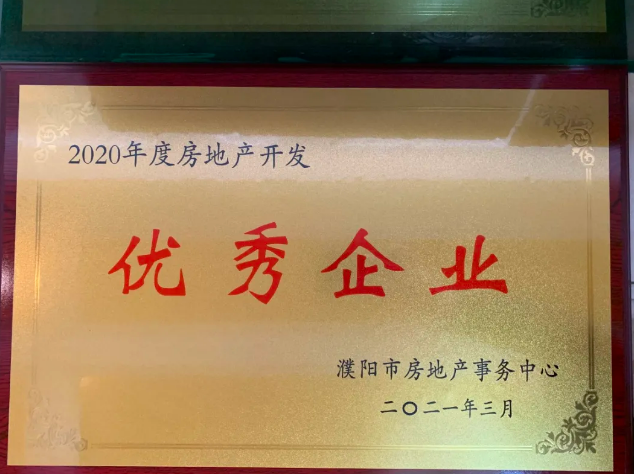 2020年度房地产开发
优秀企业
濮阳市房地产事务中心
二〇二一年三月